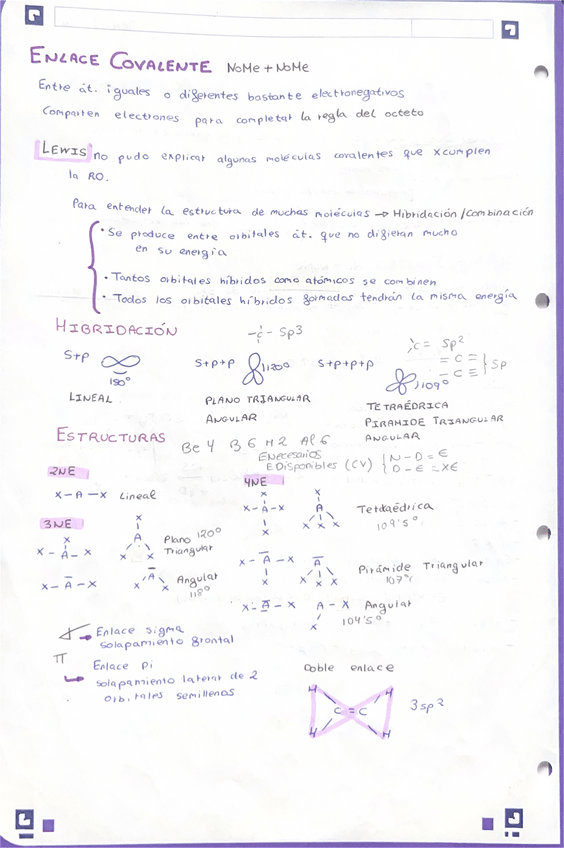 ENLACE COVALENTE NoMe + NoMe
Entre át. iguales o diferentes bastante electronegativos
Comparten electrones para completar la regla del octeto
LEWIS no pudo explicar algunas moléculas covalentes que x cumplen
la RO.
Para entender la estructura de muchas moléculas → Hibridación / Combinación
• Se produce entre orbitales át. que no difieran mucho
en su energía
• Tantos orbitales híbridos como atómicos se combinen
• Todos los orbitales híbridos formados tendrán la misma energía
HIBRIDACIÓN
-C- Sp3
C= Sp2
=C=
-C≡ } Sp
S+p 180º
S+p+p 120º
S+p+p+p 109º
LINEAL
PLANO TRIANGULAR
ANGULAR
TETRAÉDRICA
PIRAMIDE TRIANGULAR
ANGULAR
ESTRUCTURAS
Be 4 B 6 H 2 Al 6
E Necesarios
E Disponibles (CV)
N-D = E
D-E = XE
2NE
X-A-X Lineal
3NE
X-A-X
X
X
A
X X
Plano 120º
Triangular
X-A-X
A
X X
Angular
118º
4NE
X
X-A-X
X
X
A
X X X
Tetraédrica
109'5º
X-A-X
X
A
X X X
Pirámide Triangular
107º
X-A-X
A-X
X
Angular
104'5º
Enlace sigma
solapamiento frontal
π
Enlace pi
solapamiento lateral de 2
orbitales semillenos
Doble enlace
H H
C=C
H H
3 sp2